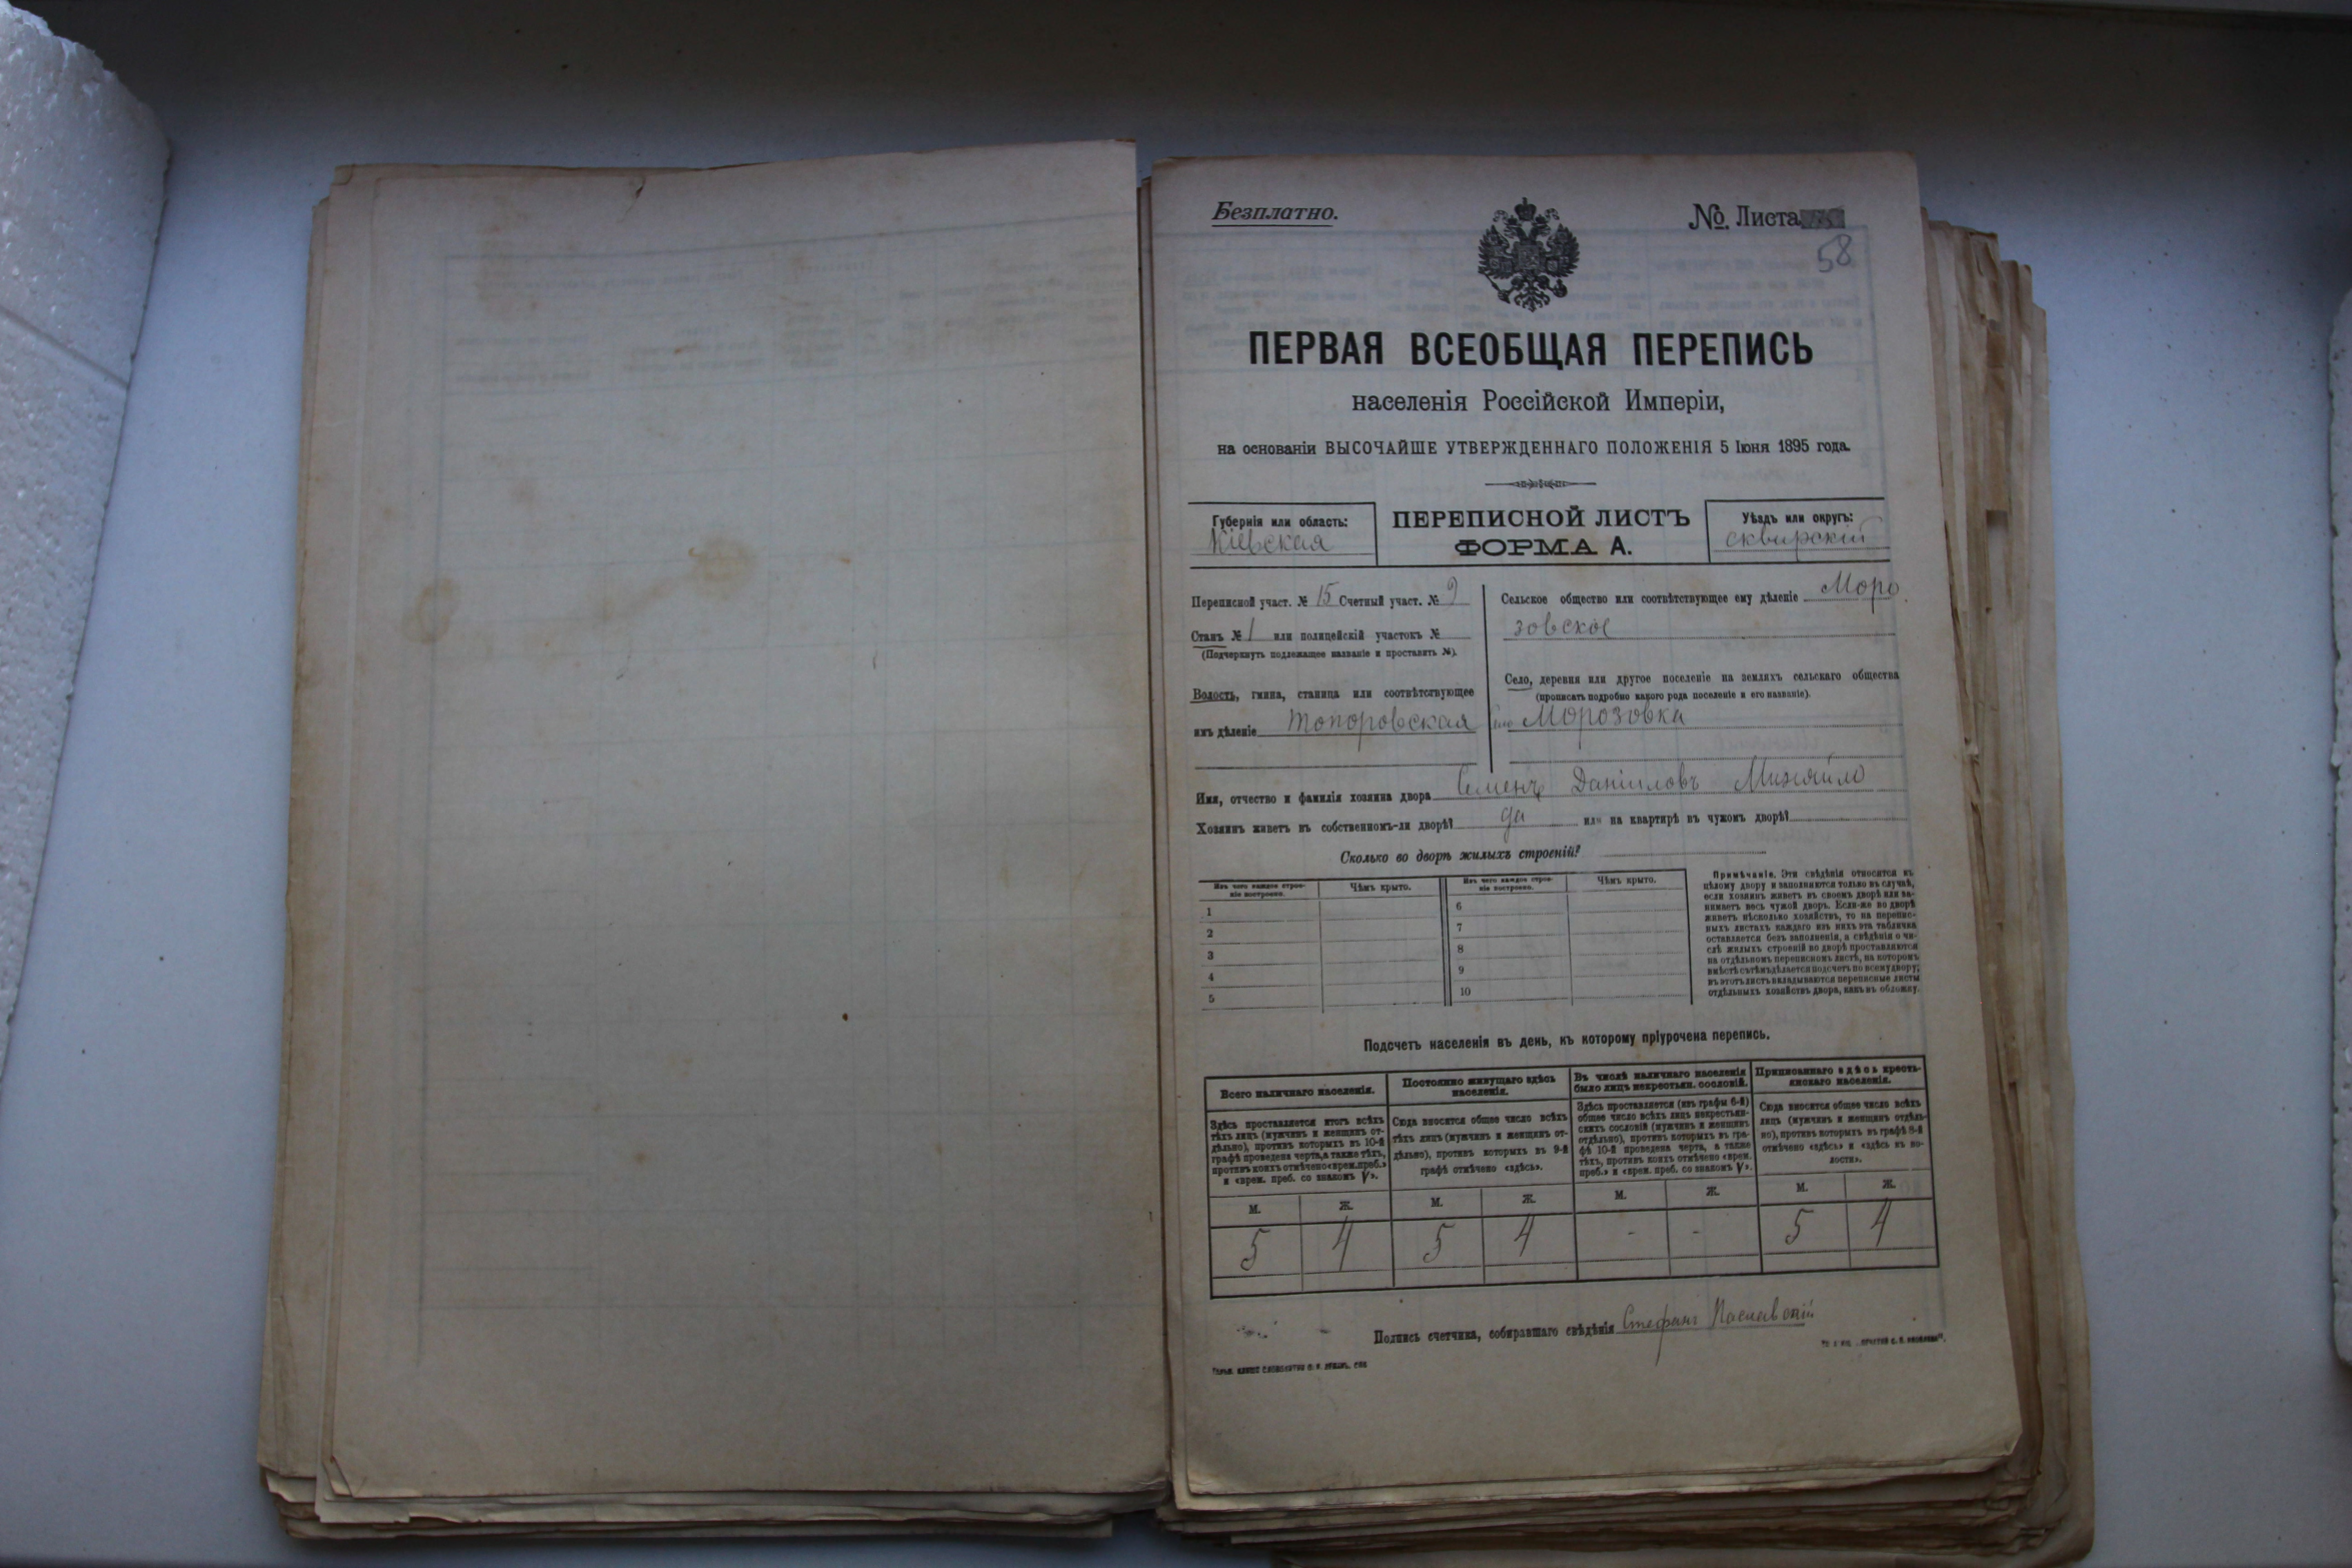 Безплатно.
№ Листа
58
ПЕРВАЯ ВСЕОБЩАЯ ПЕРЕПИСЬ
населенія Россійской Имперіи,
на основаніи ВЫСОЧАЙШЕ УТВЕРЖДЕННАГО ПОЛОЖЕНІЯ 5 Іюня 1895 года.
Губернія или область:
Кіевская
ПЕРЕПИСНОЙ ЛИСТЪ
ФОРМА А.
Уѣздъ или округъ:
сквирскій
Переписной участ. № 15 Счетный участ. № 9
Станъ № 1 или полицейскій участокъ №
(Подчеркнуть подлежащее названіе и проставить №).
Волость, гмина, станица или соотвѣтствующее
имъ дѣленіе Топоровская
Сельское общество или соотвѣтствующее ему дѣленіе Моро
зовское
Село, деревня или другое поселеніе на земляхъ сельскаго общества
(прописать подробно какого рода поселеніе и его названіе).
Морозовка
Имя, отчество и фамилія хозяина двора Семенъ Даніиловъ
Хозяинъ живетъ въ собственномъ-ли дворѣ? да или на квартирѣ въ чужомъ дворѣ?
Сколько во дворѣ жилыхъ строеній?
Изъ чего каждое строе-
ніе построено.
Чѣмъ крыто.
Изъ чего каждое строе-
ніе построено.
Чѣмъ крыто.
1
2
3
4
5
6
7
8
9
10
Примѣчаніе. Эти свѣдѣнія относятся къ
цѣлому двору и заполняются только въ случаѣ,
если хозяинъ живетъ въ своемъ дворѣ или за-
нимаетъ весь чужой дворъ. Если-же во дворѣ
живетъ нѣсколько хозяйствъ, то на перепис-
ныхъ листахъ каждаго изъ нихъ эта табличка
оставляется безъ заполненія, а свѣдѣнія о чи-
слѣ жилыхъ строеній во дворѣ проставляются
на отдѣльномъ переписномъ листѣ, на которомъ
вмѣстѣ съ тѣмъ дѣлается подсчетъ по всему двору;
въ этотъ листъ вкладываются переписные листы
отдѣльныхъ хозяйствъ двора, какъ въ обложку.
Подсчетъ населенія въ день, къ которому пріурочена перепись.
Всего наличнаго населенія.
Здѣсь проставляется итогъ всѣхъ
тѣхъ лицъ (мужчинъ и женщинъ от-
дѣльно), противъ которыхъ въ 10-й
графѣ проведена черта, а также тѣхъ,
противъ коихъ отмѣчено «врем. преб.»
и «врем. преб. со знакомъ V».
Постоянно живущаго здѣсь
населенія.
Сюда вносится общее число всѣхъ
тѣхъ лицъ (мужчинъ и женщинъ от-
дѣльно), противъ которыхъ въ 9-й
графѣ отмѣчено «здѣсь».
Въ числѣ наличнаго населенія
было лицъ некрестьян. сословій.
Здѣсь проставляется (изъ графы 6-й)
общее число всѣхъ лицъ некрестьян-
скихъ сословій (мужчинъ и женщинъ
отдѣльно), противъ которыхъ въ гра-
фѣ 10-й проведена черта, а также
тѣхъ, противъ коихъ отмѣчено «врем.
преб.» и «врем. преб. со знакомъ V».
Приписаннаго здѣсь кресть-
янскаго населенія.
Сюда вносится общее число всѣхъ
лицъ (мужчинъ и женщинъ отдѣль-
но), противъ которыхъ въ графѣ 8-й
отмѣчено «здѣсь» и «здѣсь въ во-
лости».
М. Ж. М. Ж. М. Ж. М. Ж.
5 4 5 4 - - 5 4
Подпись счетчика, собиравшаго свѣдѣнія Стефанъ